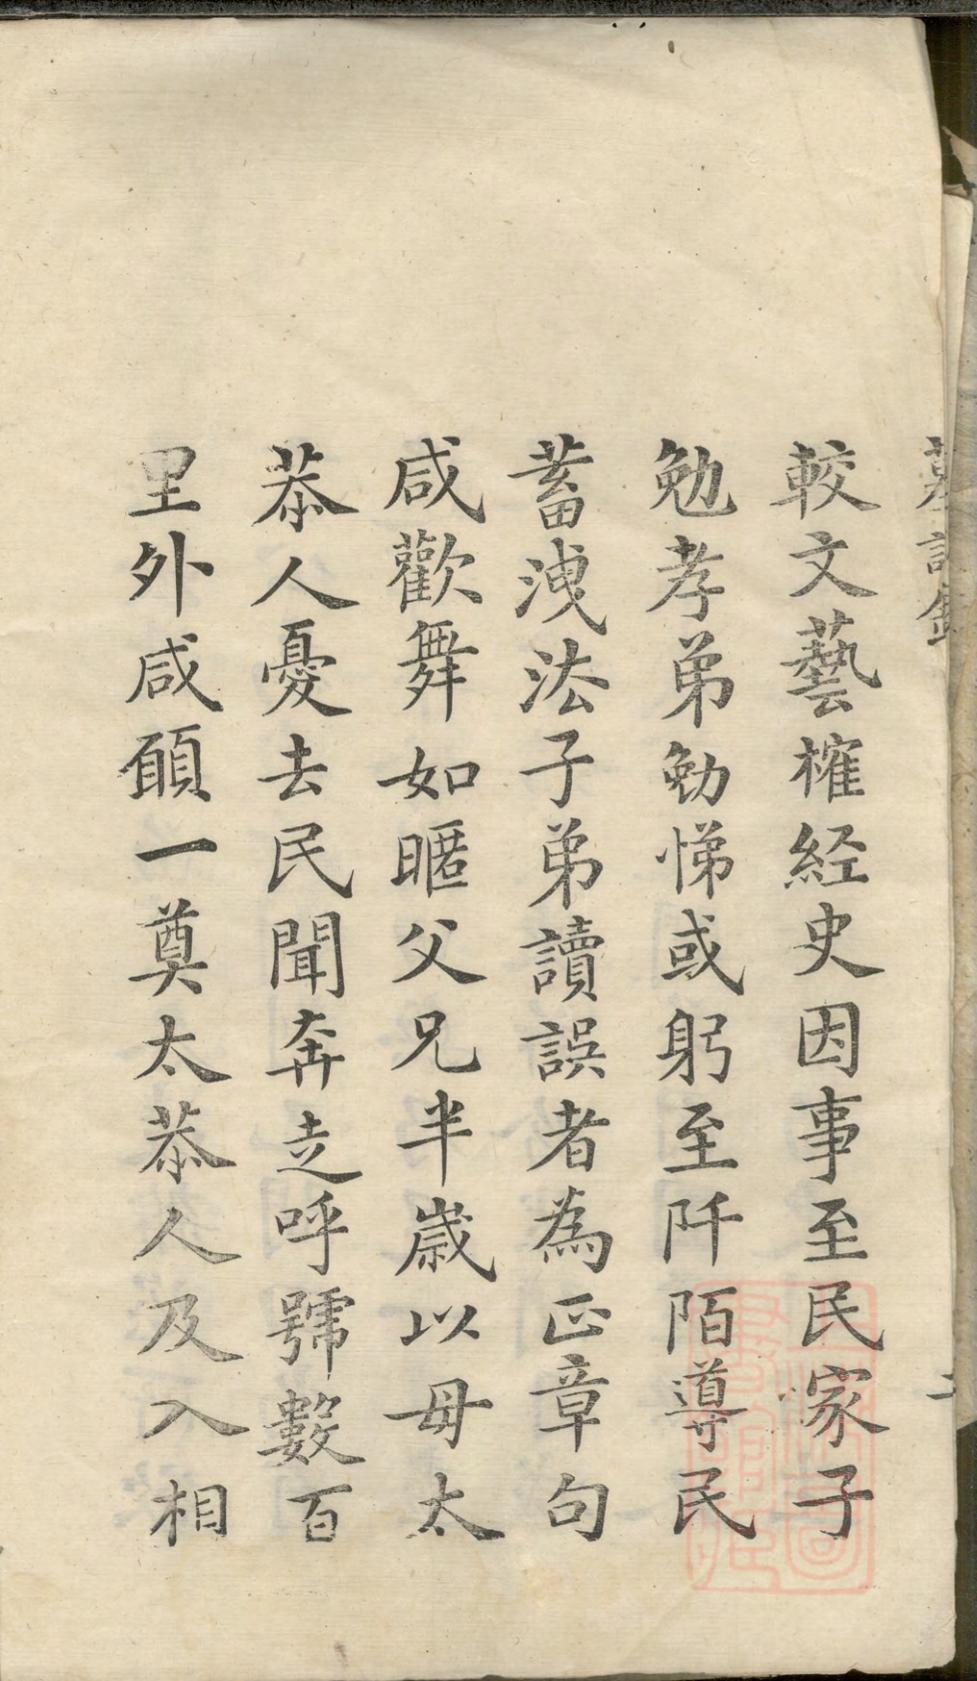 較文藝榷経史因事至民家子
勉孝弟勉悌或躬至阡陌導民
蓄洩法子弟讀誤者為正章句
咸歡舞如暱父兄半歲以母太
恭人憂去民聞奔走呼號數百
里外咸願一奠太恭人及入相